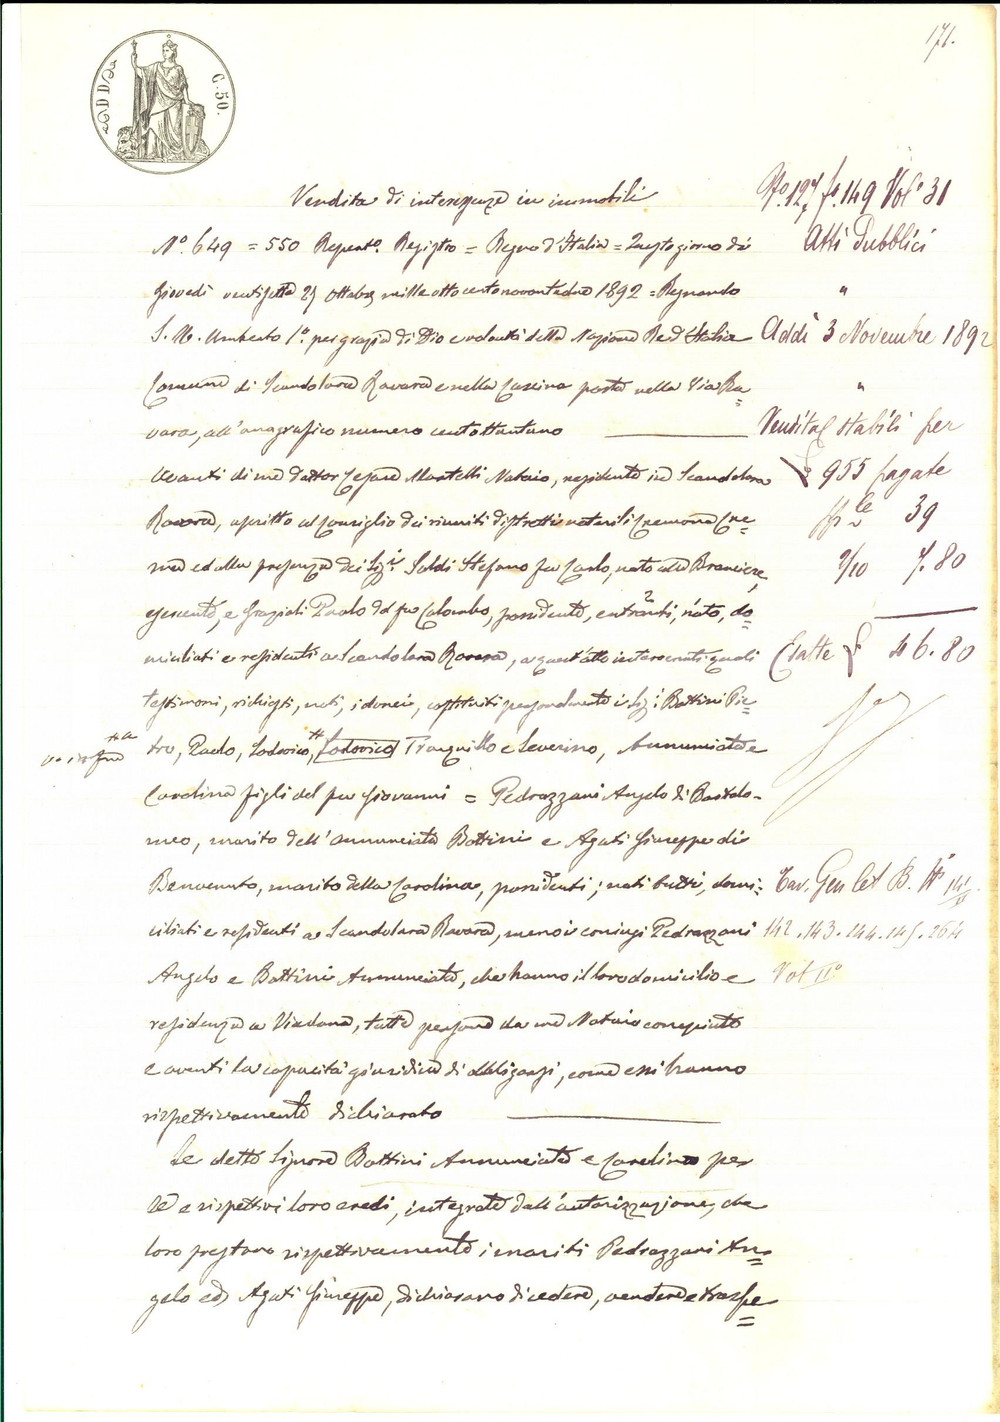 171.
C. 50.
Vendita di interessenze in immobili
N.º 649 = 550 Repert.º Registro = Regno d'Italia = Questo giorno di
Giovedì ventisette 27 ottobre mille ottocentonovantadue 1892 = Regnando
S. M. Umberto 1.º per grazia di Dio e volontà della Nazione Re d'Italia
Comune di Scandolara Ravara e nella Cascina posta nella Via Ra=
vara, all'anagrafico numero centottantuno
Avanti di me dottor Cesare Martelli Notaio, residente in Scandolara
Ravara, iscritto al Consiglio dei riuniti distretti notarili Cremona Cre=
ma ed alla presenza dei Sig.ri Soldi Stefano fu Carlo, nato alle
esercente, e Graziati Paolo del fu Colombo, possidente, entrambi, nato, do=
miciliati e residenti a Scandolara Ravara, a quest'atto intervenuti quali
testimoni, richiesti, noti, idonei, costituiti personalmente i Sig.i Bottini Pie=
tro, Paolo, Lodovico, Lodovico Tranquillo e Severino, Annunciata e
Carolina figli del fu Giovanni = Pedrazzani Angelo di Bartolo-
meo, marito dell'Annunciata Bottini e Agati Giuseppe di
Benvenuto, marito della Carolina, possidenti, nati tutti, domi=
ciliati e residenti a Scandolara Ravara, meno i coniugi Pedrazzani
Angelo e Bottini Annunciata, che hanno il loro domicilio e
residenza a Viadana, tutte persone da me Notaio conosciute
e aventi la capacità giuridica di obbligarsi, come essi hanno
rispettivamente dichiarato
Le dette Signore Bottini Annunciata e Carolina per
sé e rispettivi loro eredi, integrate dall'autorizzazione, che
loro prestano rispettivamente i mariti Pedrazzani An=
gelo ed Agati Giuseppe, dichiarano di cedere, vendere e trasfe=
N.º 127 f.º 149 Vol.º 31
Atti Pubblici
"
Addì 3 Novembre 1892
"
Vendita stabili per
£ 955 pagate
39
2/10 7.80
Esatte £ 46.80
Tav. Gen Let B. Nⁱ 141
142. 143. 144. 145. 264
Vol IIº